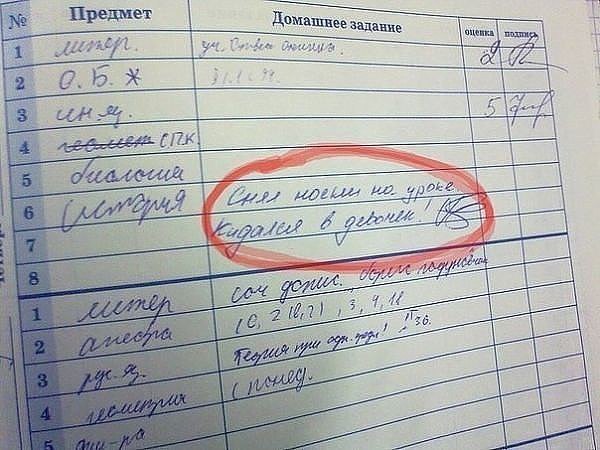 № Предмет Домашнее задание оценка подпись
1 литер. уч. 2
2 О.Б.Ж
3 ин.яз. 5
4 геомет спк.
5 биология
6 история Снял носки на уроке.
7 Кидался в девочек!
8
1 литер соч допис.
2 алгебра
3 рус.яз. Теория при 36.
4 геометрия (понед.
5 физ-ра